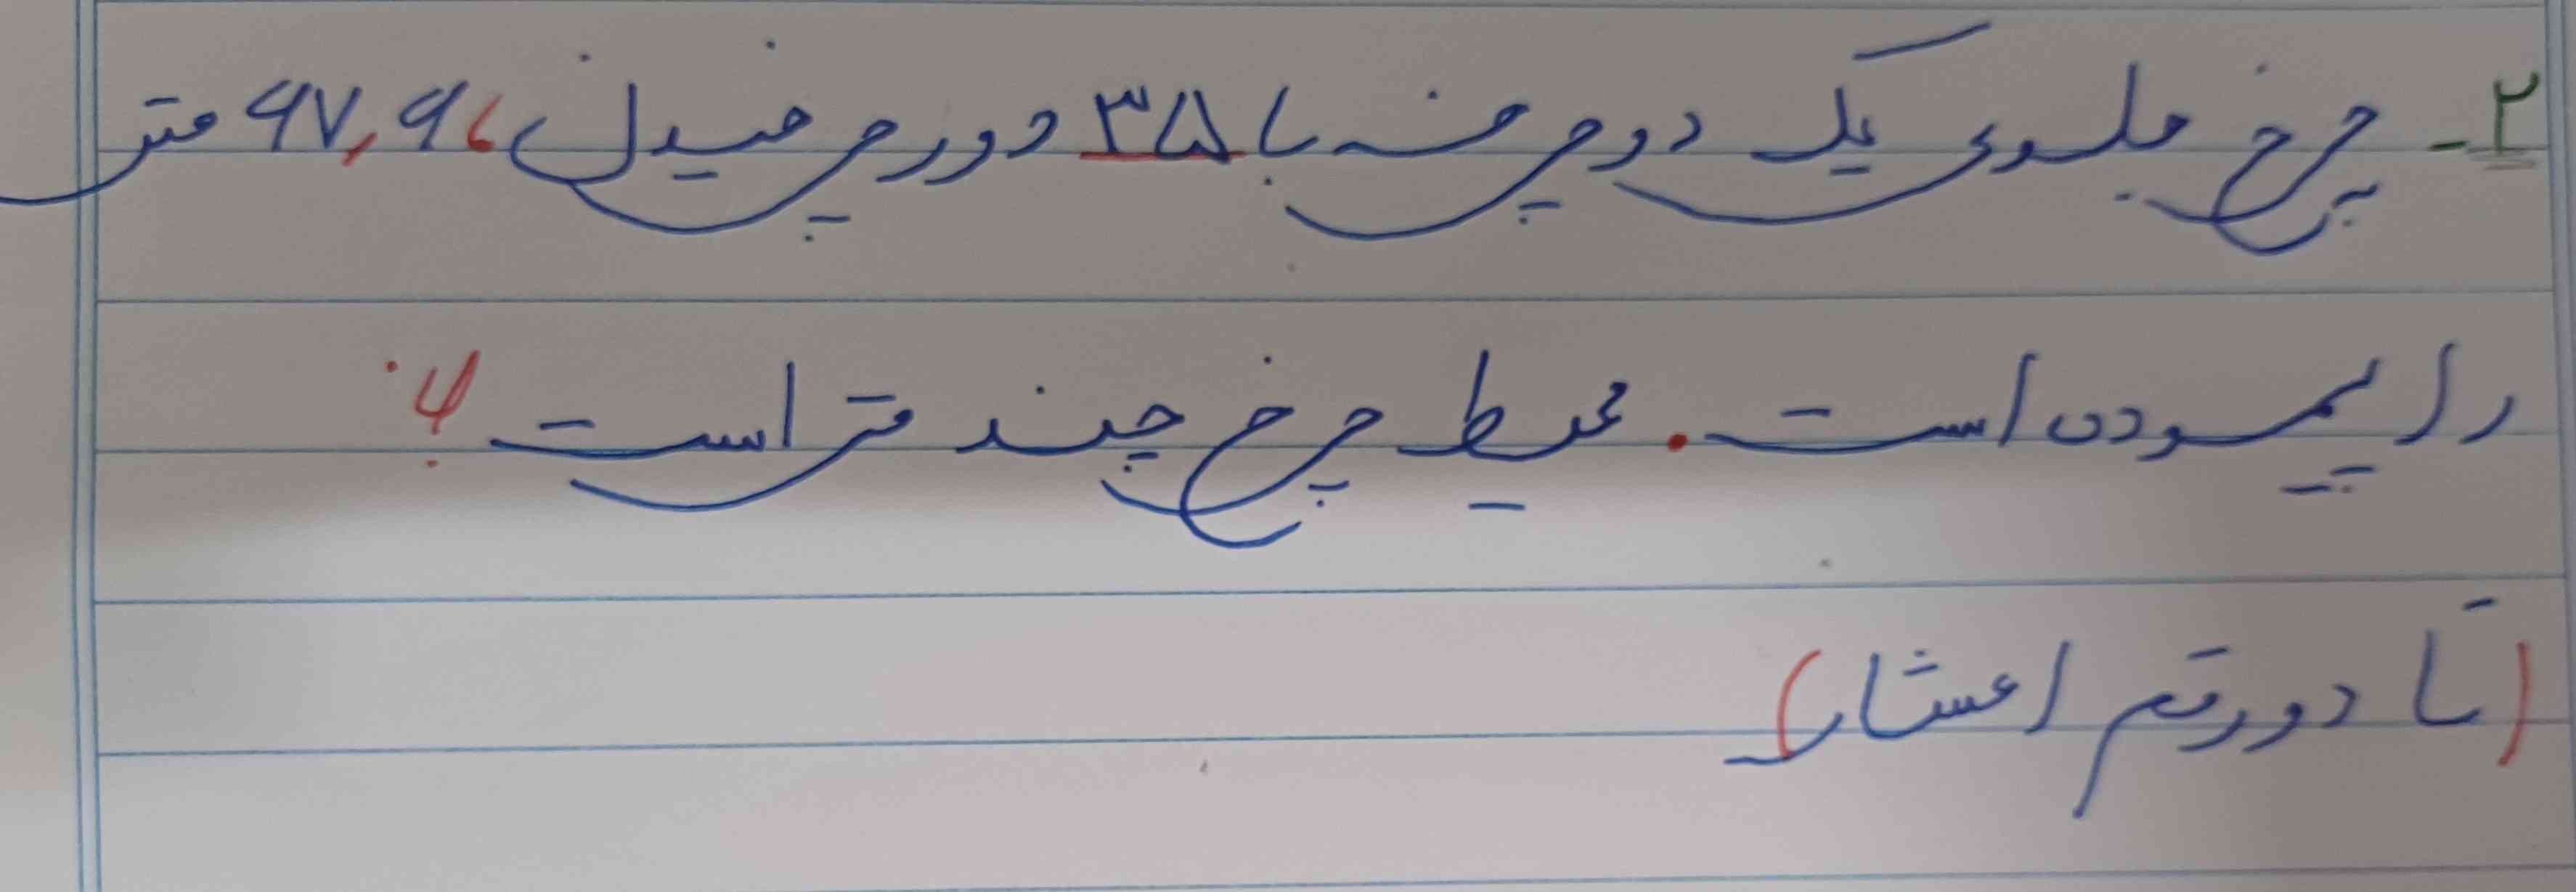 ۲- چرخ جلوی یک دوچرخه با ۳۵ دور چرخیدن، ۶۷,۶ متر
را پیموده است. محیط چرخ چند متر است؟
(تا دو رقم اعشار)